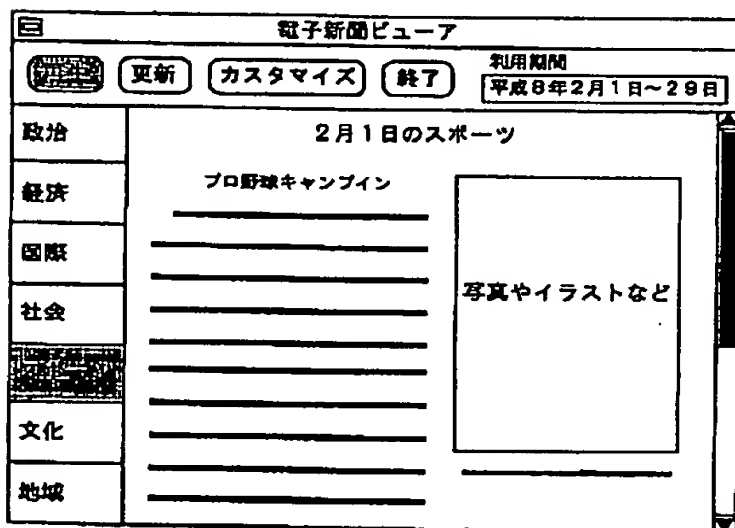 電子新聞ビューア
更新 カスタマイズ 終了
利用期間
平成8年2月1日～29日
政治
経済
国際
社会
文化
地域
2月1日のスポーツ
プロ野球キャンプイン
写真やイラストなど